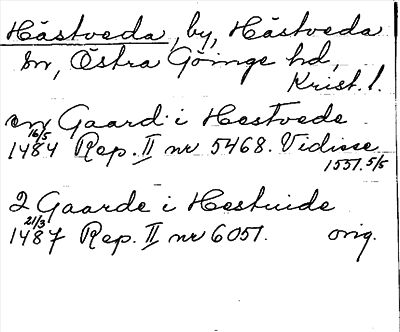 Hästveda, by, Hästveda
sn, Östra Göinge hd,
Krist. l.
en Gaard i Hestvede
16/5
1484 Rep. II nr 5468. Vidisse
1551. 5/5
2 Gaarde i Hestuide
21/3
1487 Rep. II nr 6051. orig.